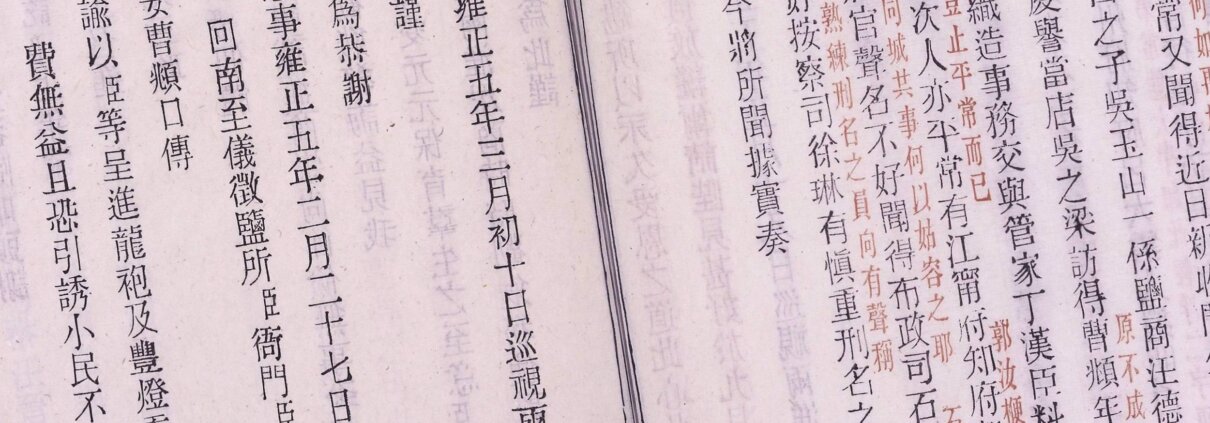 何如再
常又聞得近日新收
之子吳玉山一係鹽商汪德
原不成
慶譽當店吳之梁訪得曹頫年
織造事務交與管家丁漢臣料
豈止平常而已 郭汝楩
次人亦平常有江甯府知府
同城共事何以姑容之耶 石
官聲名不好聞得布政司石
熟練刑名之員向有聲稱
好按察司徐琳有慎重刑名之
今將所聞據實奏
雍正五年三月初十日巡視兩
謹
為恭謝
事雍正五年二月二十七日
回南至儀徵鹽所臣衙門臣
安曹頫口傳
諭以臣等呈進龍袍及豐燈
費無益且恐引誘小民不